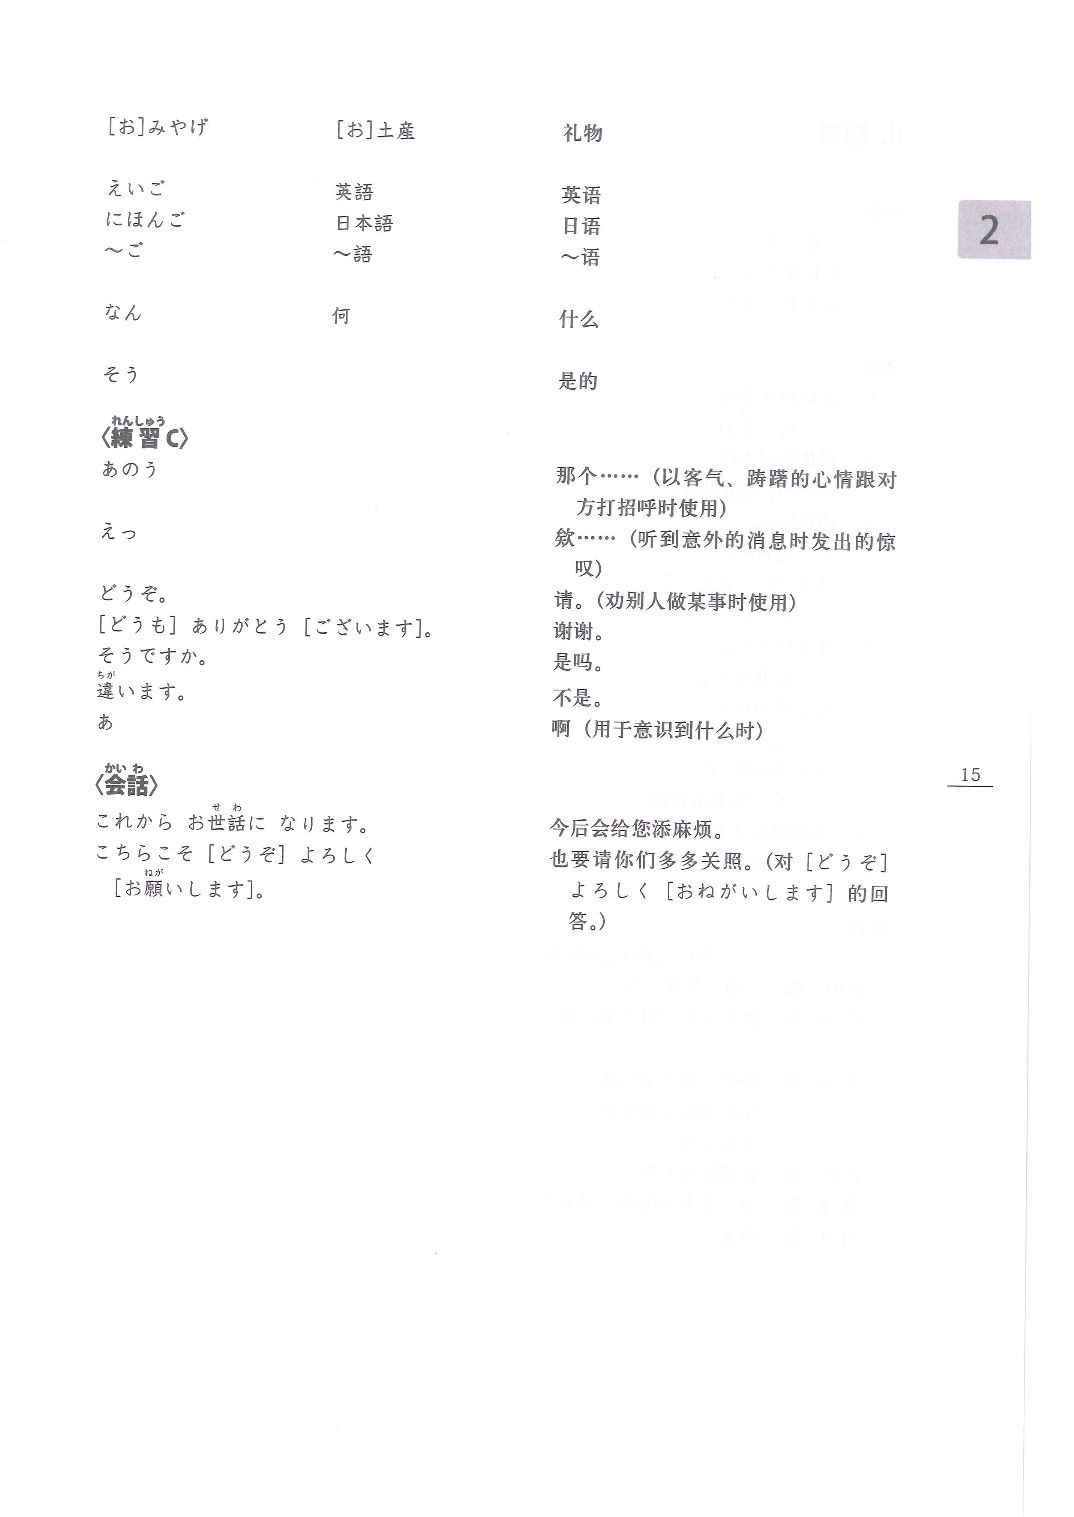 [お]みやげ [お]土産 礼物
えいご 英語 英语
にほんご 日本語 日语
～ご ～語 ～语
2
なん 何 什么
そう 是的
れんしゅう
〈練習C〉
あのう 那个……（以客气、踌躇的心情跟对
方打招呼时使用）
えっ 欸……（听到意外的消息时发出的惊
叹）
どうぞ。 请。（劝别人做某事时使用）
[どうも] ありがとう [ございます]。 谢谢。
そうですか。 是吗。
ちが
違います。 不是。
あ 啊（用于意识到什么时）
かい わ
〈会話〉
15
せ わ
これから お世話に なります。 今后会给您添麻烦。
こちらこそ [どうぞ] よろしく 也要请你们多多关照。（对 [どうぞ]
ねが
[お願いします]。 よろしく [おねがいします] 的回
答。）